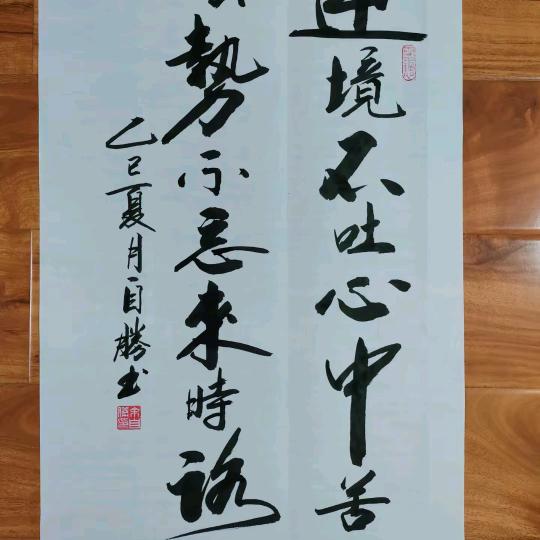 逆境不吐心中苦
勢不忘來時路
乙巳夏月自勝书